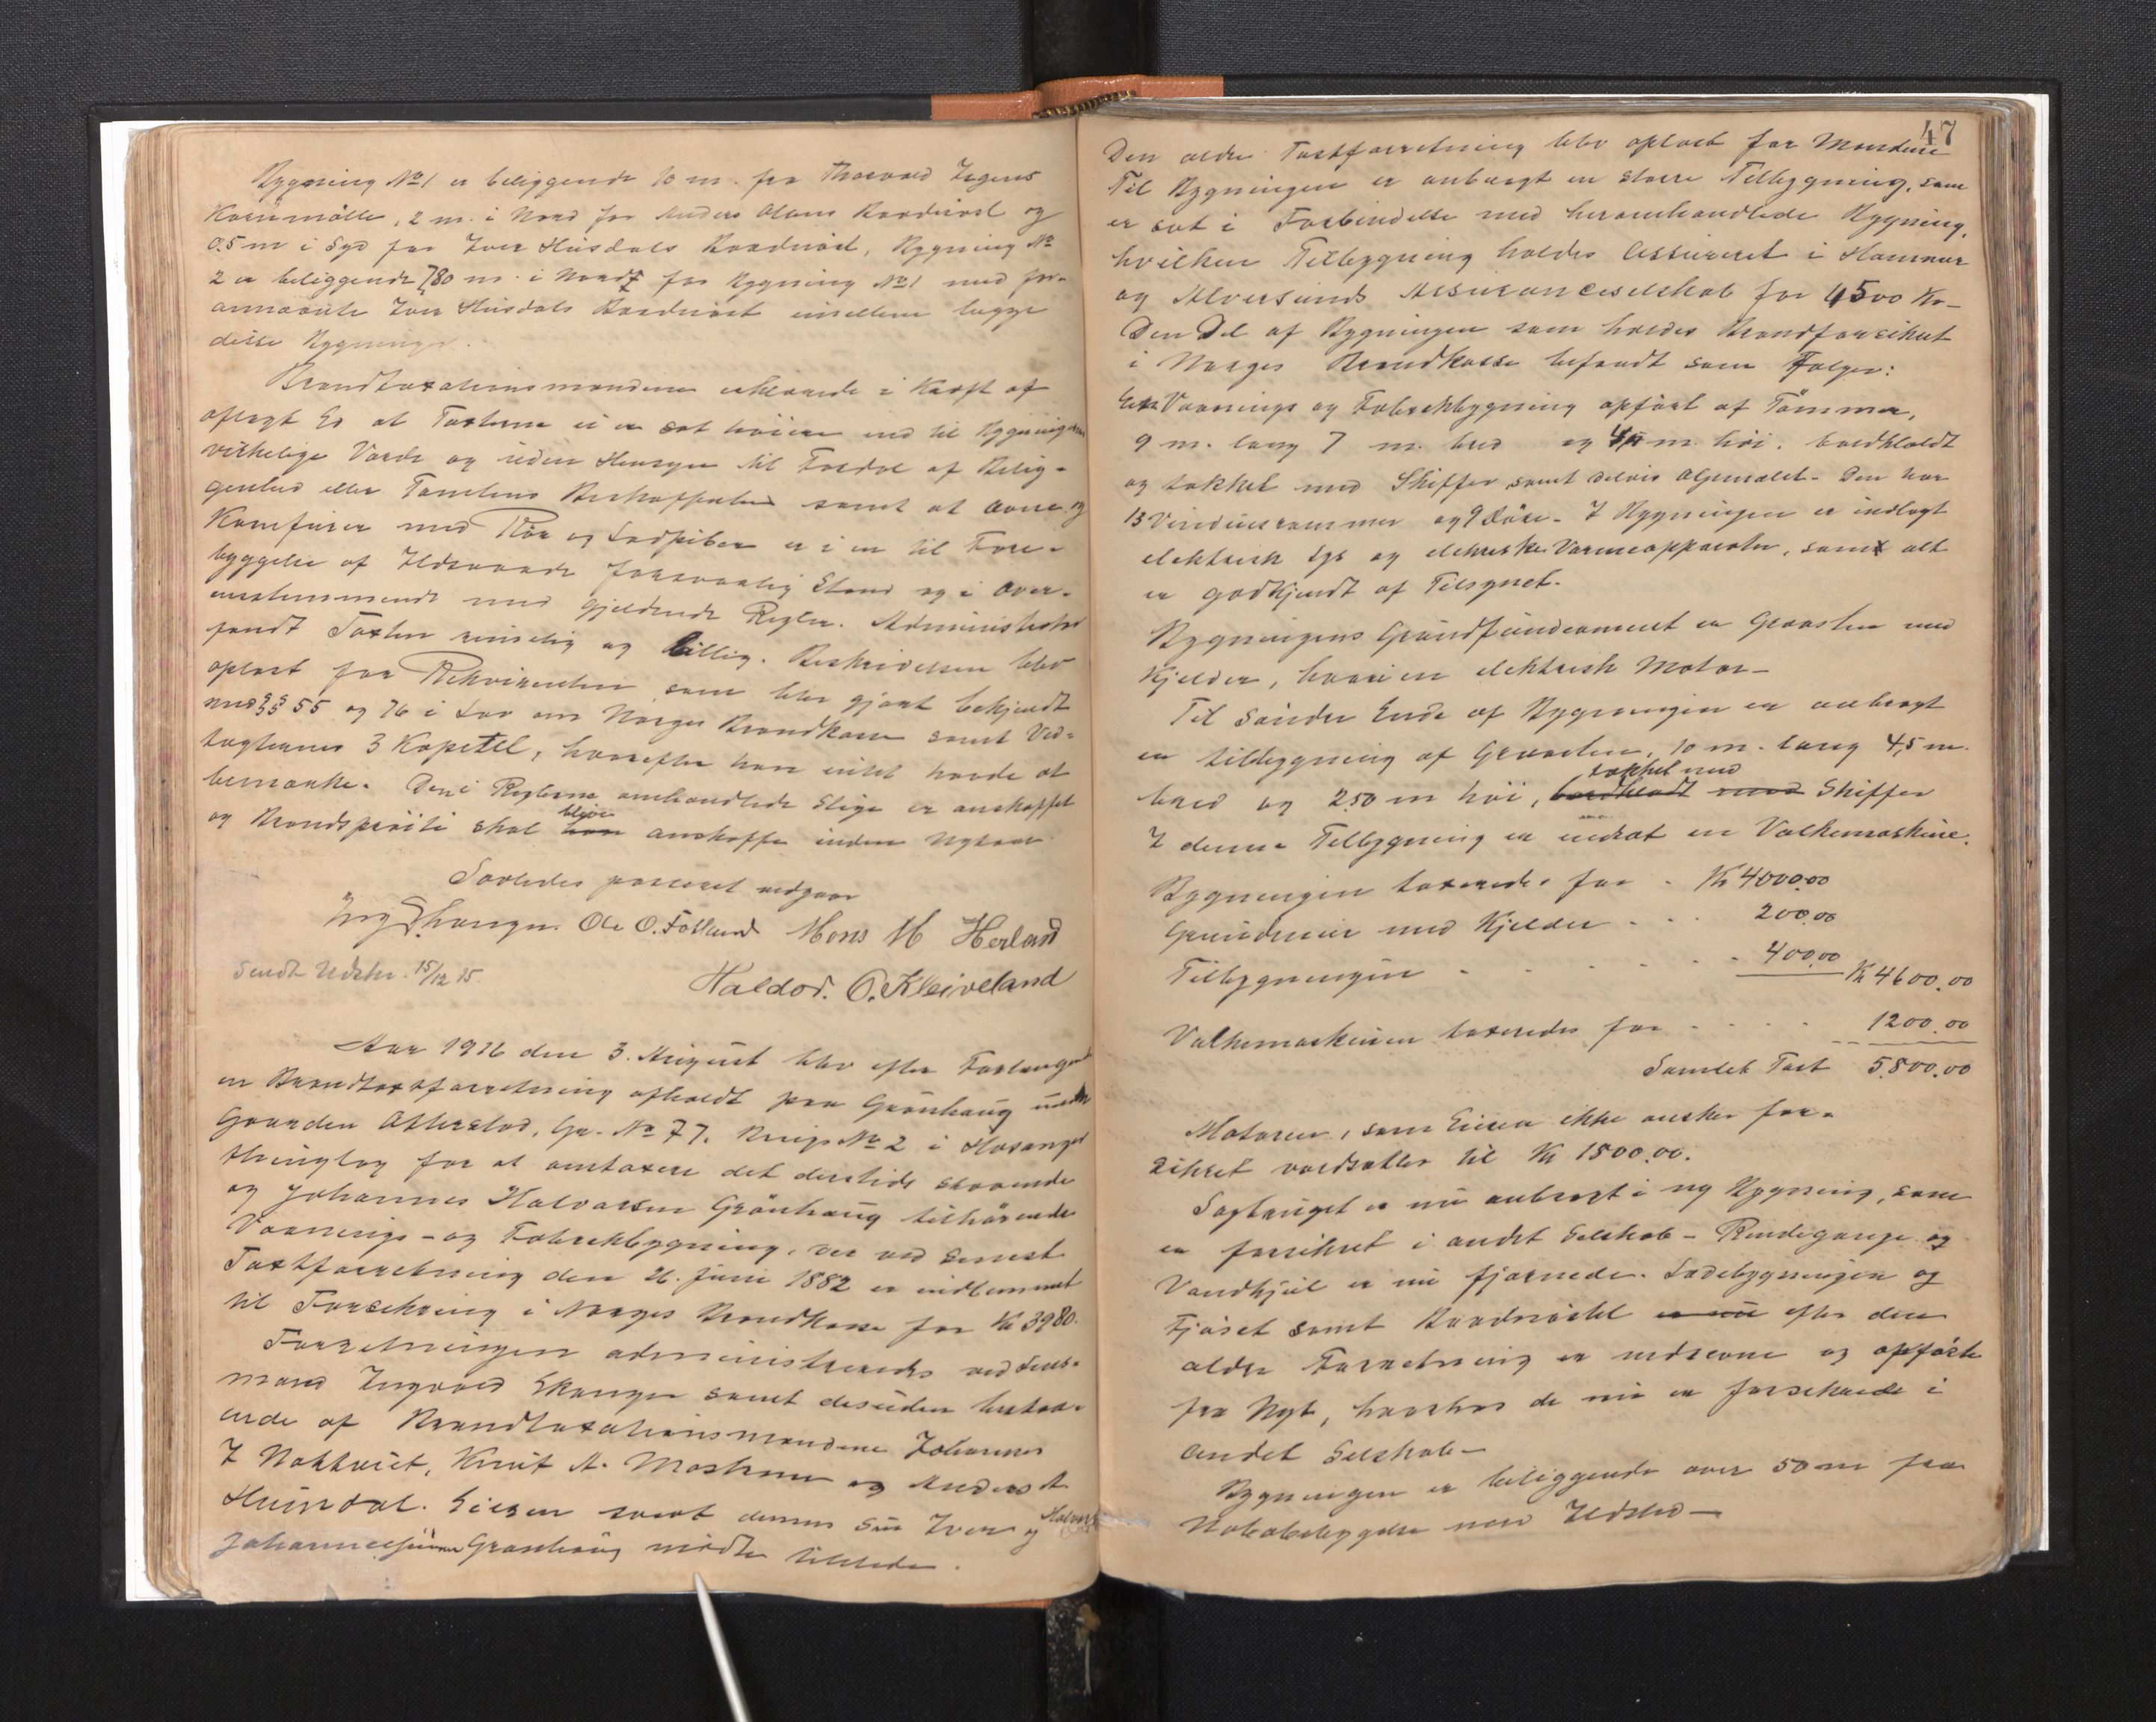 Bygning No 1 er beliggende 10 m. fra Thorvald
Kornmølle, 2 m. i Nord for Anders Olsens Baadnøst og
0.5 m i Syd for Iver Husdals Baadnøst, Bygning No
2 er beliggende 780 m. i Nord for Bygning No 1 med for-
annævnte Iver Husdals Baadnøst imellem begge
disse Bygninger.
Brandtaxationsmændene erklærede i Kraft af
aflagt Ed at Taxterne ei er sat høiere end til Bygningernes
virkelige Værdi og uden Hensyn til Fordel af Belig-
genhed eller Tomtens Beskaffenhed samt at Ovne og
Komfurer med Rør og Lodpiber er i en til Fore-
byggelse af Ildsvaade forsvarlig Stand og i Over-
ensstemmende med gjældende Regler. Administrator
fandt Taxten rimelig og billig. Beskrivelsen blev
oplæst for Rekvirenten som blev gjort bekjendt
med §§ 55 og 76 i Lov om Norges Brandkasse samt Ved-
tægternes 3 Kapitel, hvorefter han intet havde at
bemærke. Den i Reglerne omhandlede Stige er anskaffet
og Brandsprøite skal blive anskaffe inden Nytaar.
Saaledes passeret vedgaar
Ole O. Folland Mons M Herland
Sendt Udskr. 15/12 15.
Haldor. O. Kleiveland
Aar 1916 den 3. August blev efter Forlangende
en Brandtaxtforretning afholdt paa Grønhaug under
Gaarden Åtterstød, Gr. No 77. Brugs No 2 i Hosanger
Thinglag for at omtaxere det dersteds staaende
og Johannes Halvorsen Grønhaug tilhørende
Vaanings- og Fabrikbygning, der ved senest
Taxtforretning den 26. Juni 1882 er indlemmet
til Forsikring i Norges Brandkasse for Kr 3980.
Forretningen administreredes ved Lens-
mand Ingvald Skauge samt desuden bestaa-
ende af Brandtaxationsmændene Johannes
J Nottveit, Knut A. Mostraum og Anders A
Husdal. Eieren samt dennes Søn Iver og Halvor
Johannessønner Grønhaug mødte tilstede.
47
Den ældre Taxtforretning blev oplæst for Mændene
Til Bygningen er anbragt en større Tilbygning, som
er sat i Forbindelse med heromhandlede Bygning,
hvilken Tilbygning holdes Assureret i Hammer
og Alversunds Assuranceselskab for 4500 Kr-
Den Del af Bygningen som holdes Brandforsikret
i Norges Brandkasse befandt som Følger:
Een Vaanings og Fabrikbygning opført af Tømmer,
9 m. lang 7 m. bred og m. høi. bordklædt
og tækket med Skiffer samt delvis Oljemalet. Den har
13 Vinduesrammer og 9 Døre. I Bygningen er indlagt
elektrisk Lys og elektriske Varmeapparater, samt alt
er godkjendt af Tilsynet.
Bygningens Grundfundament er Graasten med
Kjelder, hvori en elektrisk Motor-
Til søndre Ende af Bygningen er anbragt
en tilbygning af Graasten, 10 m. lang 4,5 m.
bred og 2.50 m høi, bordklædt med tækket med Skiffer
I denne Tilbygning er indsat en Valkemaskine.
Bygningen taxeredes for - Kr 4000.00
Grundmur med Kjelder - - - 200.00
Tilbygningen - - - - - - - 400.00 Kr 4600.00
Valkemaskinen taxeredes for - - - - 1200.00
Samlet Taxt 5.800.00
Motoren, som Eieren ikke ønsker for-
sikret værdsattes til Kr 1800.00.
Sagbruget er nu anbragt i ny Bygning, som
er forsikret i andet Selskab - Rendegange og
Vandhjul er nu fjærnede. Ladebygningen og
Fjøset samt Baadnøstet er nu efter den
ældre Forretning er nedrevne og opførte
paa Nyt, hvorhos de nu er forsikrede i
andet Selskab-
Bygningen er beliggende over 50 m fra
Nabobebyggelse med Ildsted-